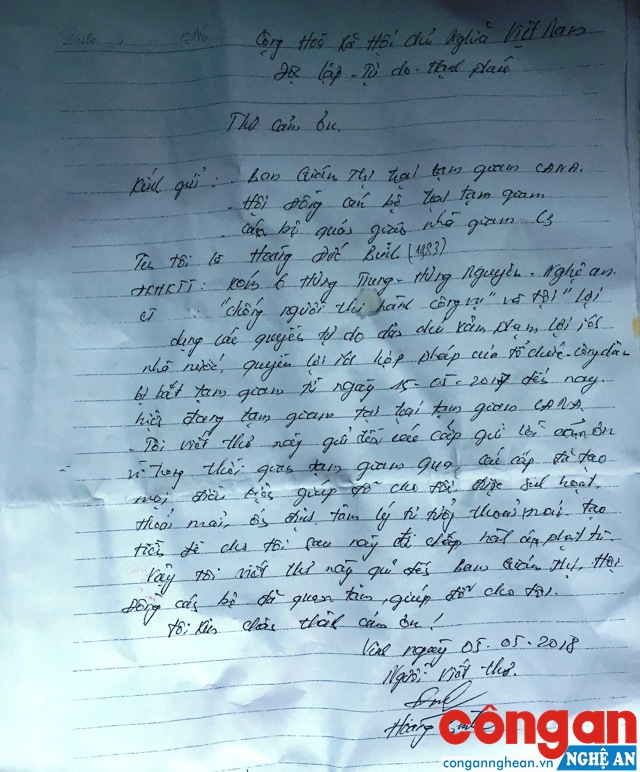 Date No
Cộng Hoà Xã Hội Chủ Nghĩa Việt Nam
Độc lập - Tự do - Hạnh phúc
Thư cảm ơn.
Kính gửi: - Ban Giám Thị trại tạm giam CANA.
- Hội đồng cán bộ trại tạm giam
- cán bộ quản giáo nhà giam C3
Tên tôi là Hoàng Đức Bình (1983)
HKTT: xóm 6 Hưng Trung - Hưng Nguyên - Nghệ an.
"chống người thi hành công vụ" và tội "lợi
dụng các quyền tự do dân chủ xâm phạm lợi ích
nhà nước, quyền lợi ích hợp pháp của tổ chức - công dân
bị bắt tạm giam từ ngày 15-05-2017 đến nay.
hiện đang tạm giam tại trại tạm giam CANA.
- Tôi viết thư này gửi đến các cấp gửi lời cảm ơn
vì trong thời gian tạm giam qua, các cấp đã tạo
mọi điều kiện giúp đỡ cho tôi được sinh hoạt,
thoải mái, ổn định tâm lý tư tưởng thoải mái. tạo
tiền đề cho tôi sau này đi chấp hành án phạt tù.
Vậy tôi viết thư này gửi đến ban Giám thị, Hội
Đồng cán bộ đã quan tâm, giúp đỡ cho tôi.
Tôi xin chân thành cảm ơn!
Vinh ngày 05-05-2018
Người viết thư.
Hoàng
côngan
congannghean.vn NGHỆ AN